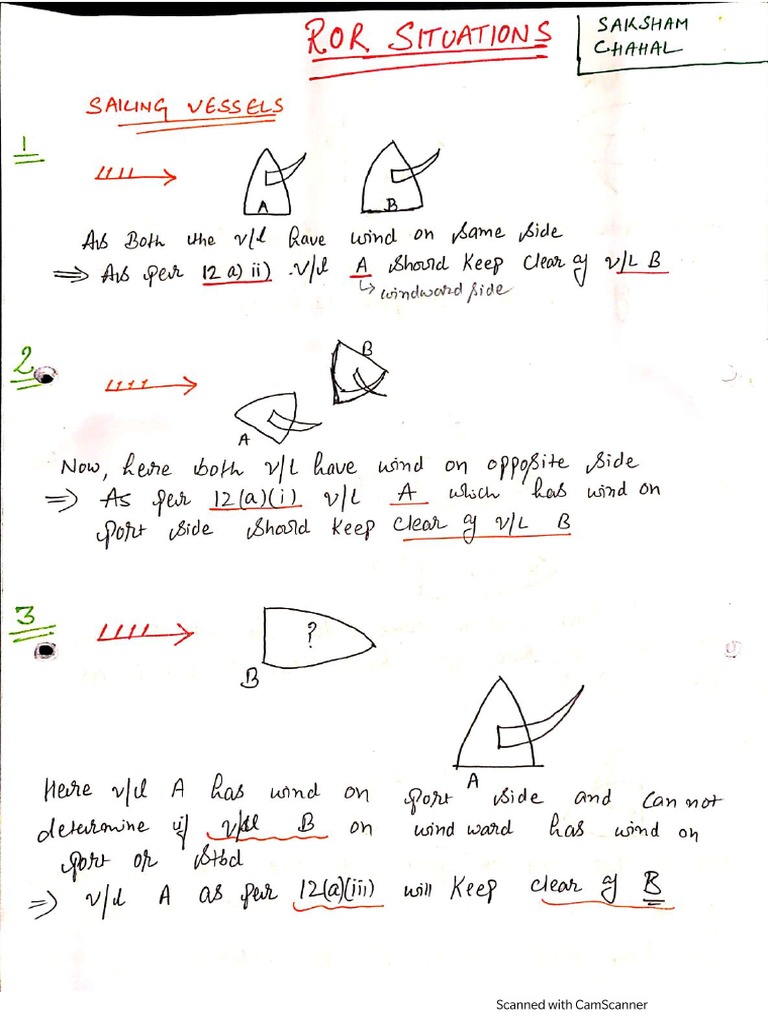 ROR SITUATIONS
SAKSHAM
CHAHAL
SAILING VESSELS
1
A
B
As Both the v/l have wind on same side
⇒ As per 12 a) ii) v/l A should keep clear of v/L B
↳ windward side
2
B
A
Now, here both v/L have wind on opposite side
⇒ As per 12(a)(i) v/L A which has wind on
port side should keep clear of v/L B
3
?
B
A
Here v/l A has wind on port side and can not
determine if v/sl B on windward has wind on
port or stbd
⇒ v/l A as per 12(a)(iii) will keep clear of B
Scanned with CamScanner